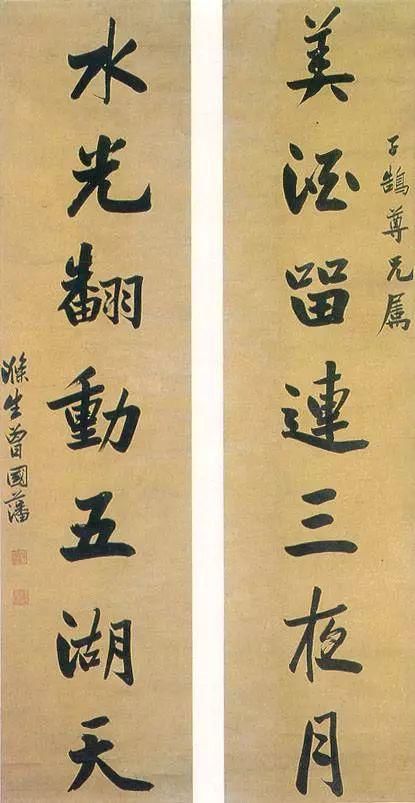 美酒留連三夜月
子鶴尊兄屬
水光翻動五湖天
滌生曾國藩